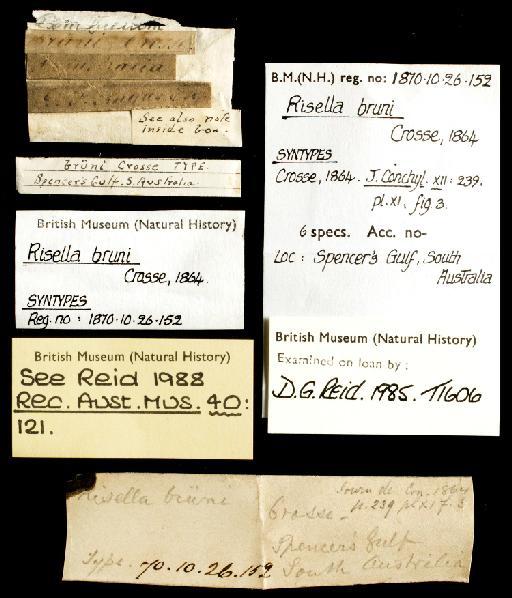 brüni Cross
See also note
inside box.
brüni Crosse TYPE
Spencer's Gulf. S. Australia.
British Museum (Natural History)
Risella bruni
Crosse, 1864.
SYNTYPES
Reg. no : 1870·10·26·152
British Museum (Natural History)
See Reid 1988
Rec. Aust. Mus. 40:
121.
B.M.(N.H.) reg. no: 1870·10·26·152
Risella bruni
Crosse, 1864
SYNTYPES
Crosse, 1864. J. Conchyl. XII: 239.
pl.XI. fig 3.
6 specs. Acc. no-
Loc : Spencer's Gulf, South
Australia
British Museum (Natural History)
Examined on loan by :
D.G. Reid. 1985. T1606
Risella brüni
Crosse -
Journ de Con. 1864
p. 239 pl xi f. 3
Spencer's Gulf
South Australia
Type. 70.10.26.152